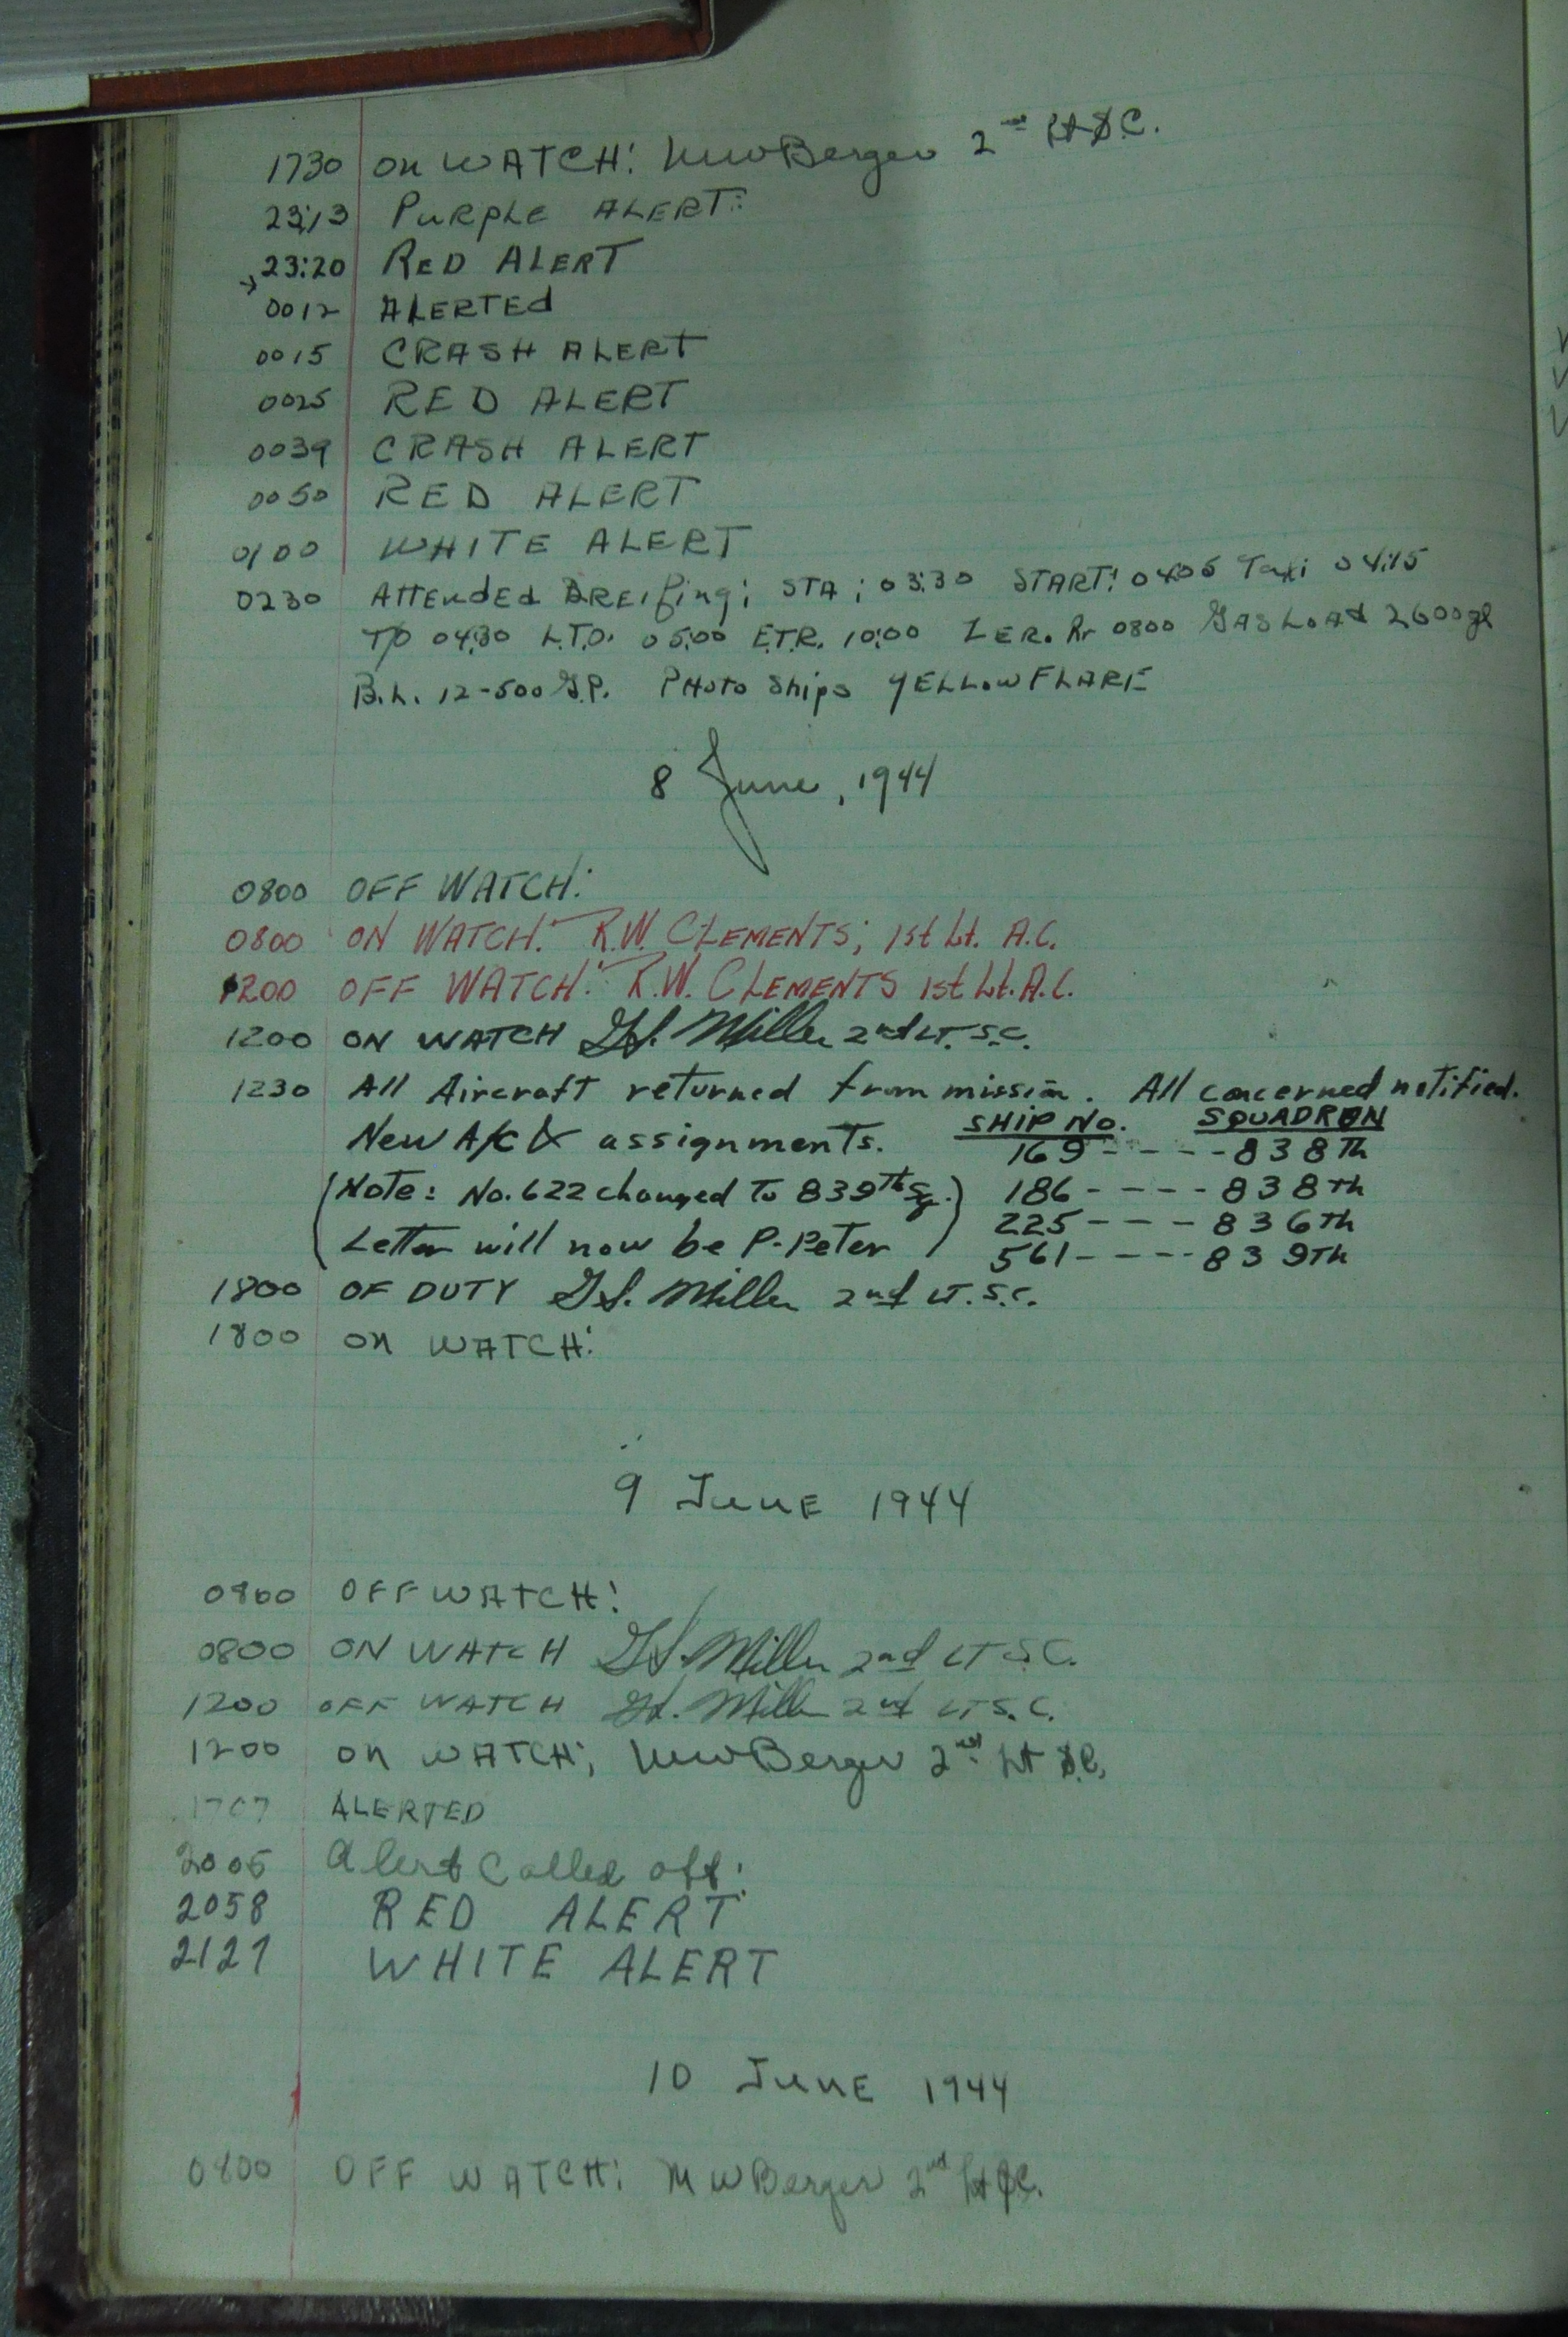 1730 On WATCH: MWBerger 2nd Lt S.C.
23:13 PURPLE ALERT:
23:20 RED ALERT
0012 ALERTEd
0015 CRASH ALERT
0025 RED ALERT
0039 CRASH ALERT
0050 RED ALERT
0100 WHITE ALERT
0230 Attended BREIfing; STA; 03:30 START: 0405 Taxi 04:15
T/O 04:30 L.T.O. 05:00 E.T.R. 10:00 ZER. Hr 0800 GAS LOAd 2600gl
B.L. 12-500 G.P. PHoto Ships YELLOW FLARE
8 June, 1944
0800 OFF WATCH:
0800 ON WATCH: R.W. CLEMENTS; 1st Lt. A.C.
1200 OFF WATCH: R.W. CLEMENTS 1st Lt. A.C.
1200 ON WATCH G.S. Miller 2nd LT. S.C.
1230 All Aircraft returned from mission. All concerned notified.
New A/C & assignments. SHIP NO. SQUADRON
169 - - - - - 838Th
(Note: No. 622 changed To 839th Sq.) 186 - - - - 838Th
225 - - - 836Th
Letter will now be P-Peter 561 - - - - 839Th
1800 OF DUTY G.S. Miller 2nd LT. S.C.
1800 On WATCH:
9 JuNE 1944
0800 OFF WATCH:
0800 ON WATCH G.S. Miller 2nd LT S.C.
1200 OFF WATCH G.S. Miller 2nd LT S.C.
1200 On WATCH; MWBerger 2nd Lt S.C.
1707 ALERTED
2005 Alert Called off:
2058 RED ALERT
2127 WHITE ALERT
10 JuNE 1944
0800 OFF WATCH: MWBerger 2nd Lt S.C.